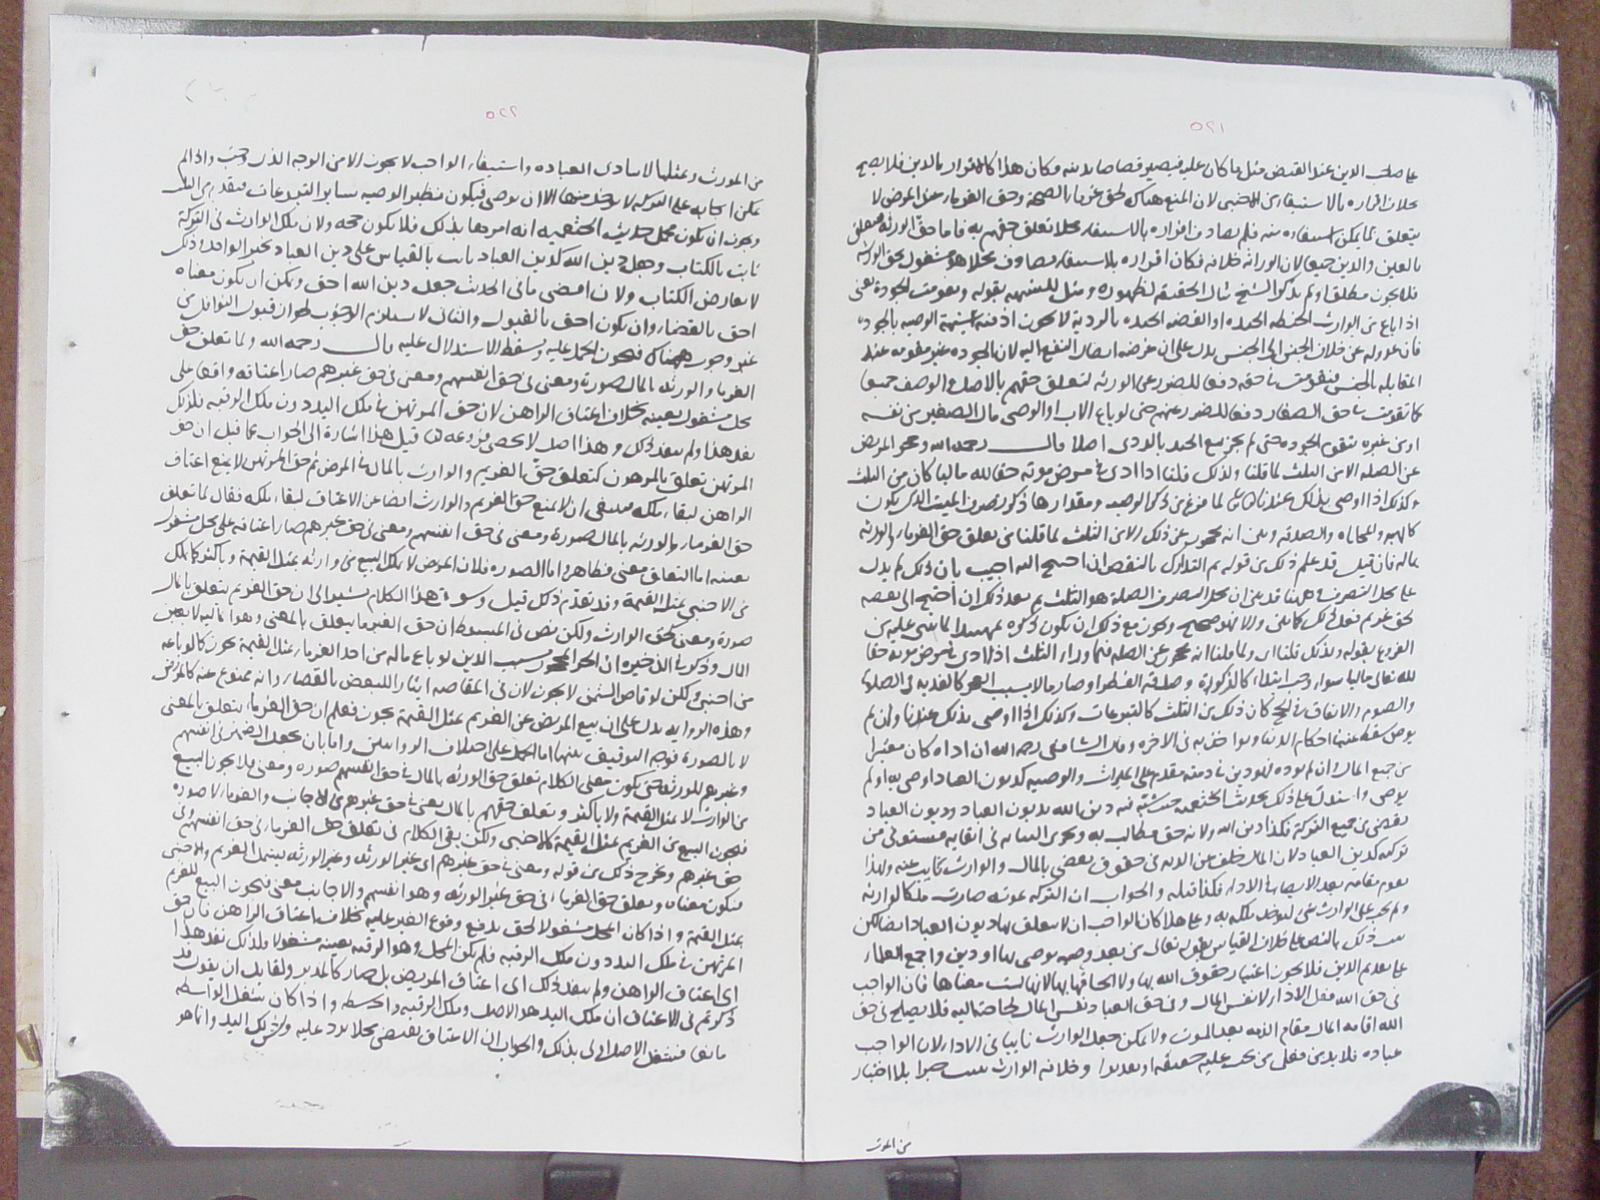 ٥٢١
على صاحب الدين عند القبض مثل ما كان عليه فيصير قصاصا بدينه وكان هذا كالاقرار بالدين فلا يصح
بخلاف اقراره بالاستيفاء من الاجنبي لان المنع هناك لحق غرماء الصحة وحق الغرماء عند المرض لا
يتعلق بما يمكن استيفاؤه منه فلم يصادف اقراره بالاستيفاء محلا تعلق حقهم به فاما حق الورثة فيتعلق
بالعين والدين جميعا لان الوراثة خلافة فكان اقراره بالاستيفاء مصادفا محلا هو مشغول بحق الورثة
فلا يجوز مطلقا ولم يذكر الشيخ مثال الحقيقة لظهوره ومثل للشبهة بقوله وتقومت الجودة يعني
اذا باع من الوارث الحنطة الجيدة او الفضة الجيدة بالردية لا يجوز اذ فيه شبهة الوصية بالجودة
فان عدوله عن خلاف الجنس الى الجنس يدل على ان غرضه ايصال النفع اليه لان الجودة غير متقومة عند
المقابلة بالجنس فتقومت في حقه دفعا للضرر عن الورثة لتعلق حقهم بالاصل والوصف جميعا
كما تقومت في حق الصغار دفعا للضرر عنهم حتى لو باع الاب او الوصي مال الصغير من نفسه
او من غيره تتقوم الجودة حتى لم يجز بيع الجيد بالردي اصلا قال رحمه الله وحجر المريض
عن الصلة الا من الثلث لما قلنا ولذلك قلنا اذا ادى في مرض موته حقا لله ماليا كان من الثلث
وكذلك اذا اوصى بذلك عندنا لما فرغ من ذكر الوصية ومقدارها ذكر تصرف الميت الذي يكون
كالهبة والمحاباة والصدقة وبين انه محجور عن ذلك الا من الثلث لما قلنا من تعلق حق الغرماء والورثة
بماله فان قيل قد علم ذلك من قوله ثم التدارك بالنقض ان احتيج اليه اجيب بان ذلك لم يدل
على محل التصرف وههنا قد بين ان محل التصرف الصلة هو الثلث ثم بعد ذلك ان احتيج الى نقضه
لحق غريم فعل ذلك كما بين والا فهو صحيح ويجوز مع ذلك ان يكون ذكره تمهيدا لما يبنى عليه من
الفروع بقوله ولذلك قلنا اي ولما قلنا انه محجور عن الصلة فيما وراء الثلث اذا ادى في مرض موته حقا
لله تعالى ماليا سواء وجب ابتداء كالزكوة وصدقة الفطر او صار ماليا بسبب العجز كالفدية في الصلوة
والصوم والانفاق في الحج كان ذلك من الثلث كالتبرعات وكذلك اذا اوصى بذلك عندنا وان لم
يوص سقط عنه في احكام الدنيا ويواخذ به في الاخرة وقال الشافعي رحمه الله ان اداه كان معتبرا
من جميع المال وان لم يوده فهو دين في ذمته مقدم على الميراث والوصية كديون العباد اوصى به او لم
يوص واستدل على ذلك بحديث الخثعمية حيث شبه فيه دين الله بديون العباد وديون العباد
تقضى من جميع التركة فكذا دين الله ولانه حق مطالب به وتجري النيابة في ايفائه مستوفى من
تركته كدين العباد لان المال خلف عن الذمة في حقوق تقضى بالمال والوارث نايب عنه ولهذا
يقوم مقامه بعد الايصاء في الاداء فكذا قبله والجواب ان التركة بموته صارت ملكا لوارثه
ولم يجب على الوارث شي ليوخذ ملكه به وعلى هذا كان الواجب ان لا يتعلق بها ديون العباد ايضا لكن
ثبت ذلك بالنص على خلاف القياس بقوله تعالى من بعد وصية يوصى بها او دين واجمع العلماء
على تقديم الدين فلا يجوز اعتبار حقوق الله بها ولا الحاقها بها لانها ليست معناها فان الواجب
في حق الله فعل الاداء لا نفس المال وفي حق العباد نفس المال لحاجتهم اليه فلا يصلح في حق
الله اقامة المال مقام الذمة بعد الموت ولا يمكن جعل الوارث نايبا في الاداء لان الواجب
عبادة فلا بد من فعل من يجب عليه حقيقة او تقديرا وخلافة الوارث تثبت جبرا بلا اختيار
من المورث
٥٢٢
من المورث وبمثلها لا يتادى العبادة واستيفاء الواجب لا يجوز الا من الوجه الذي وجب واذا لم
يمكن ايجابه على التركة لا يوخذ منها الا ان يوصي فيكون نظير الوصية بسائر التبرعات فيقدم من الثلث
ويجوز ان يكون محمل حديث الخثعمية انه امرها بذلك فلا يكون حجة ولان ملك الوارث في التركة
ثابت بالكتاب وجعل دين الله كدين العباد ثابت بالقياس على دين العباد بخبر الواحد وذلك
لا يعارض الكتاب ولان اقصى ما في الحديث جعل دين الله احق ويمكن ان يكون معناه
احق بالقضاء وان يكون احق بالقبول والثاني لا يستلزم الوجوب لجواز قبول النوافل من
غير وجوب هناك فيجوز الحمل عليه ويسقط الاستدلال عليه قال رحمه الله ولما تعلق حق
الغرماء والورثة بالمال صورة ومعنى في حق انفسهم ومعنى في حق غيرهم صار اعتاقه واقعا على
محل مشغول بعينه بخلاف اعتاق الراهن لان حق المرتهن في ملك اليد دون ملك الرقبة فلذلك
نفذ هذا ولم ينفذ ذلك وهذا اصل لا يحصى فروعه قيل هذا اشارة الى الجواب عما قيل ان حق
المرتهن تعلق بالمرهون كتعلق حق الغريم والوارث بالمال في المرض ثم حق المرتهن لا يمنع اعتاق
الراهن لبقاء ملكه فينبغي ان لا يمنع حق الغريم والوارث ايضا عن الاعتاق لبقاء ملكه فقال لما تعلق
حق الغرماء والورثة بالمال صورة ومعنى في حق انفسهم ومعنى في حق غيرهم صار اعتاقه على محل مشغول
بعينه اما التعلق معنى فظاهر واما الصورة فلان المريض لا يملك البيع من وارثه بمثل القيمة وباكثر كما يملك
من الاجنبي بمثل القيمة وقد تقدم ذكره قيل وسوق هذا الكلام يشير الى ان حق الغريم يتعلق بالمال
صورة ومعنى كحق الوارث ولكن نص في المبسوط ان حق الغير ما يتعلق بالمعنى وهو المالية لا بعين
المال وذكر في الذخيرة ان الحر المحجور بسبب الدين لو باع ماله من احد الغرماء بمثل القيمة يجوز كما لو باعه
من اجنبي ولكن لو قاص الثمن لا يجوز لان في المقاصة ايثارا للبعض بالقضاء وانه ممنوع عنه كالمريض
وهذه الرواية يدل على ان بيع المريض عن الغريم بمثل القيمة يجوز فعلم ان حق الغرماء يتعلق بالمعنى
لا بالصورة فوجه التوفيق بينهما اما الحمل على اختلاف الروايتين واما بان يجعل الضمير في انفسهم
وغيرهم للورثة حتى يكون معنى الكلام تعلق حق الورثة بالمال في حق انفسهم صورة ومعنى فلا يجوز البيع
من الوارث لا بمثل القيمة ولا باكثر وتعلق حقهم بالمال معنى في حق غيرهم من الاجانب والغرماء لا صورة
فيجوز البيع من الغريم بمثل القيمة كالاجنبي ولكن بقي الكلام في تعلق حق الغرماء في حق انفسهم وفي
حق غيرهم ويخرج ذلك من قوله ومعنى في حق غيرهم اي غير الورثة وغير الورثة يشمل الغريم والاجنبي
فيكون معناه ويتعلق حق الغرماء في حق غير الورثة وهو انفسهم والاجانب معنى فيجوز البيع للغريم
بمثل القيمة واذا كان المحل مشغولا لحق يدفع وقوع الغير عليه بخلاف اعتاق الراهن فان حق
المرتهن في ملك اليد دون ملك الرقبة فلم يكن المحل وهو الرقبة بعينه مشغولا ولذلك نفذ هذا
اي اعتاق الراهن ولم ينفذ ذلك اي اعتاق المريض بل صار كالمدبر ولقايل ان يقول قد
ذكرتم في الاعتاق ان ملك اليد هو الاصل وملك الرقبة وسيلة واذا كان شغل الواسطة
مانعا فشغل الاصل اولى بذلك والجواب ان الاعتاق يقتضي محلا يرد عليه وليس ذلك اليد وانما هو